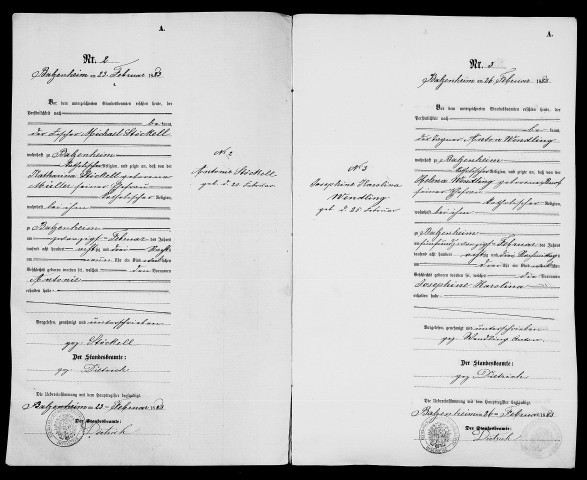 A.
Nr. 2
Balzenheim am 23. Februar 1883
Vor dem unterzeichneten Standesbeamten erschien heute, der
Persönlichkeit nach
be kannt,
der Fischer Michael Stöckell
wohnhaft zu Balzenheim
katholischer Religion, und zeigte an, daß von der
Katharina Stöckell geborene
Müller seiner Ehefrau
katholischer Religion,
wohnhaft bei ihm
zu Balzenheim
am zwanzigsten Februar des Jahres
tausend acht hundert achtzig und drei
um neun Uhr ein Kind
Geschlechts geboren worden sei, welches den Vornamen
Antonie
erhalten habe
Vorgelesen, genehmigt und unterschrieben
gez Stöckell
Der Standesbeamte:
gez Dietrich
Die Uebereinstimmung mit dem Hauptregister beglaubigt
Balzenheim am 23 Februar 1883
Der Standesbeamte:
Dietrich
No 2
Antonie Stöckell
geb. d. 20 Februar
No 3
Josephine Karolina
Wendling
geb. d 25 Februar
A.
Nr. 3
Balzenheim am 26. Februar 1883
Vor dem unterzeichneten Standesbeamten erschien heute, der
Persönlichkeit nach
be kannt,
Anton Wendling
wohnhaft zu Balzenheim
katholischer Religion, und zeigte an, daß von der
Helena Wendling geborene
seiner Ehefrau
katholischer Religion,
wohnhaft bei ihm
zu Balzenheim
am fünfundzwanzigsten Februar des Jahres
tausend acht hundert achtzig und drei
um drei Uhr ein Kind
Geschlechts geboren worden sei, welches die Vornamen
Josephine Karolina
erhalten habe
Vorgelesen, genehmigt und unterschrieben
gez Wendling Anton
Der Standesbeamte:
gez Dietrich
Die Uebereinstimmung mit dem Hauptregister beglaubigt
Balzenheim am 26 Februar 1883
Der Standesbeamte:
Dietrich